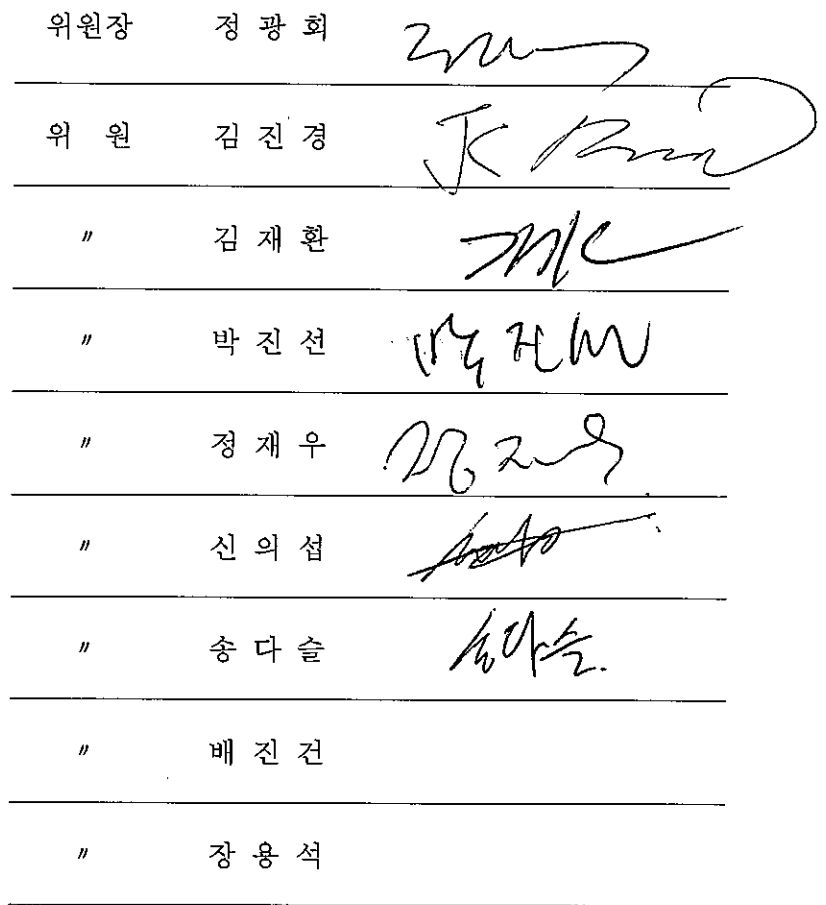 위원장 정 광 회
위 원 김 진 경 JK
〃 김 재 환
〃 박 진 선 박진선
〃 정 재 우 정재우
〃 신 의 섭
〃 송 다 슬 송다슬.
〃 배 진 건
〃 장 용 석